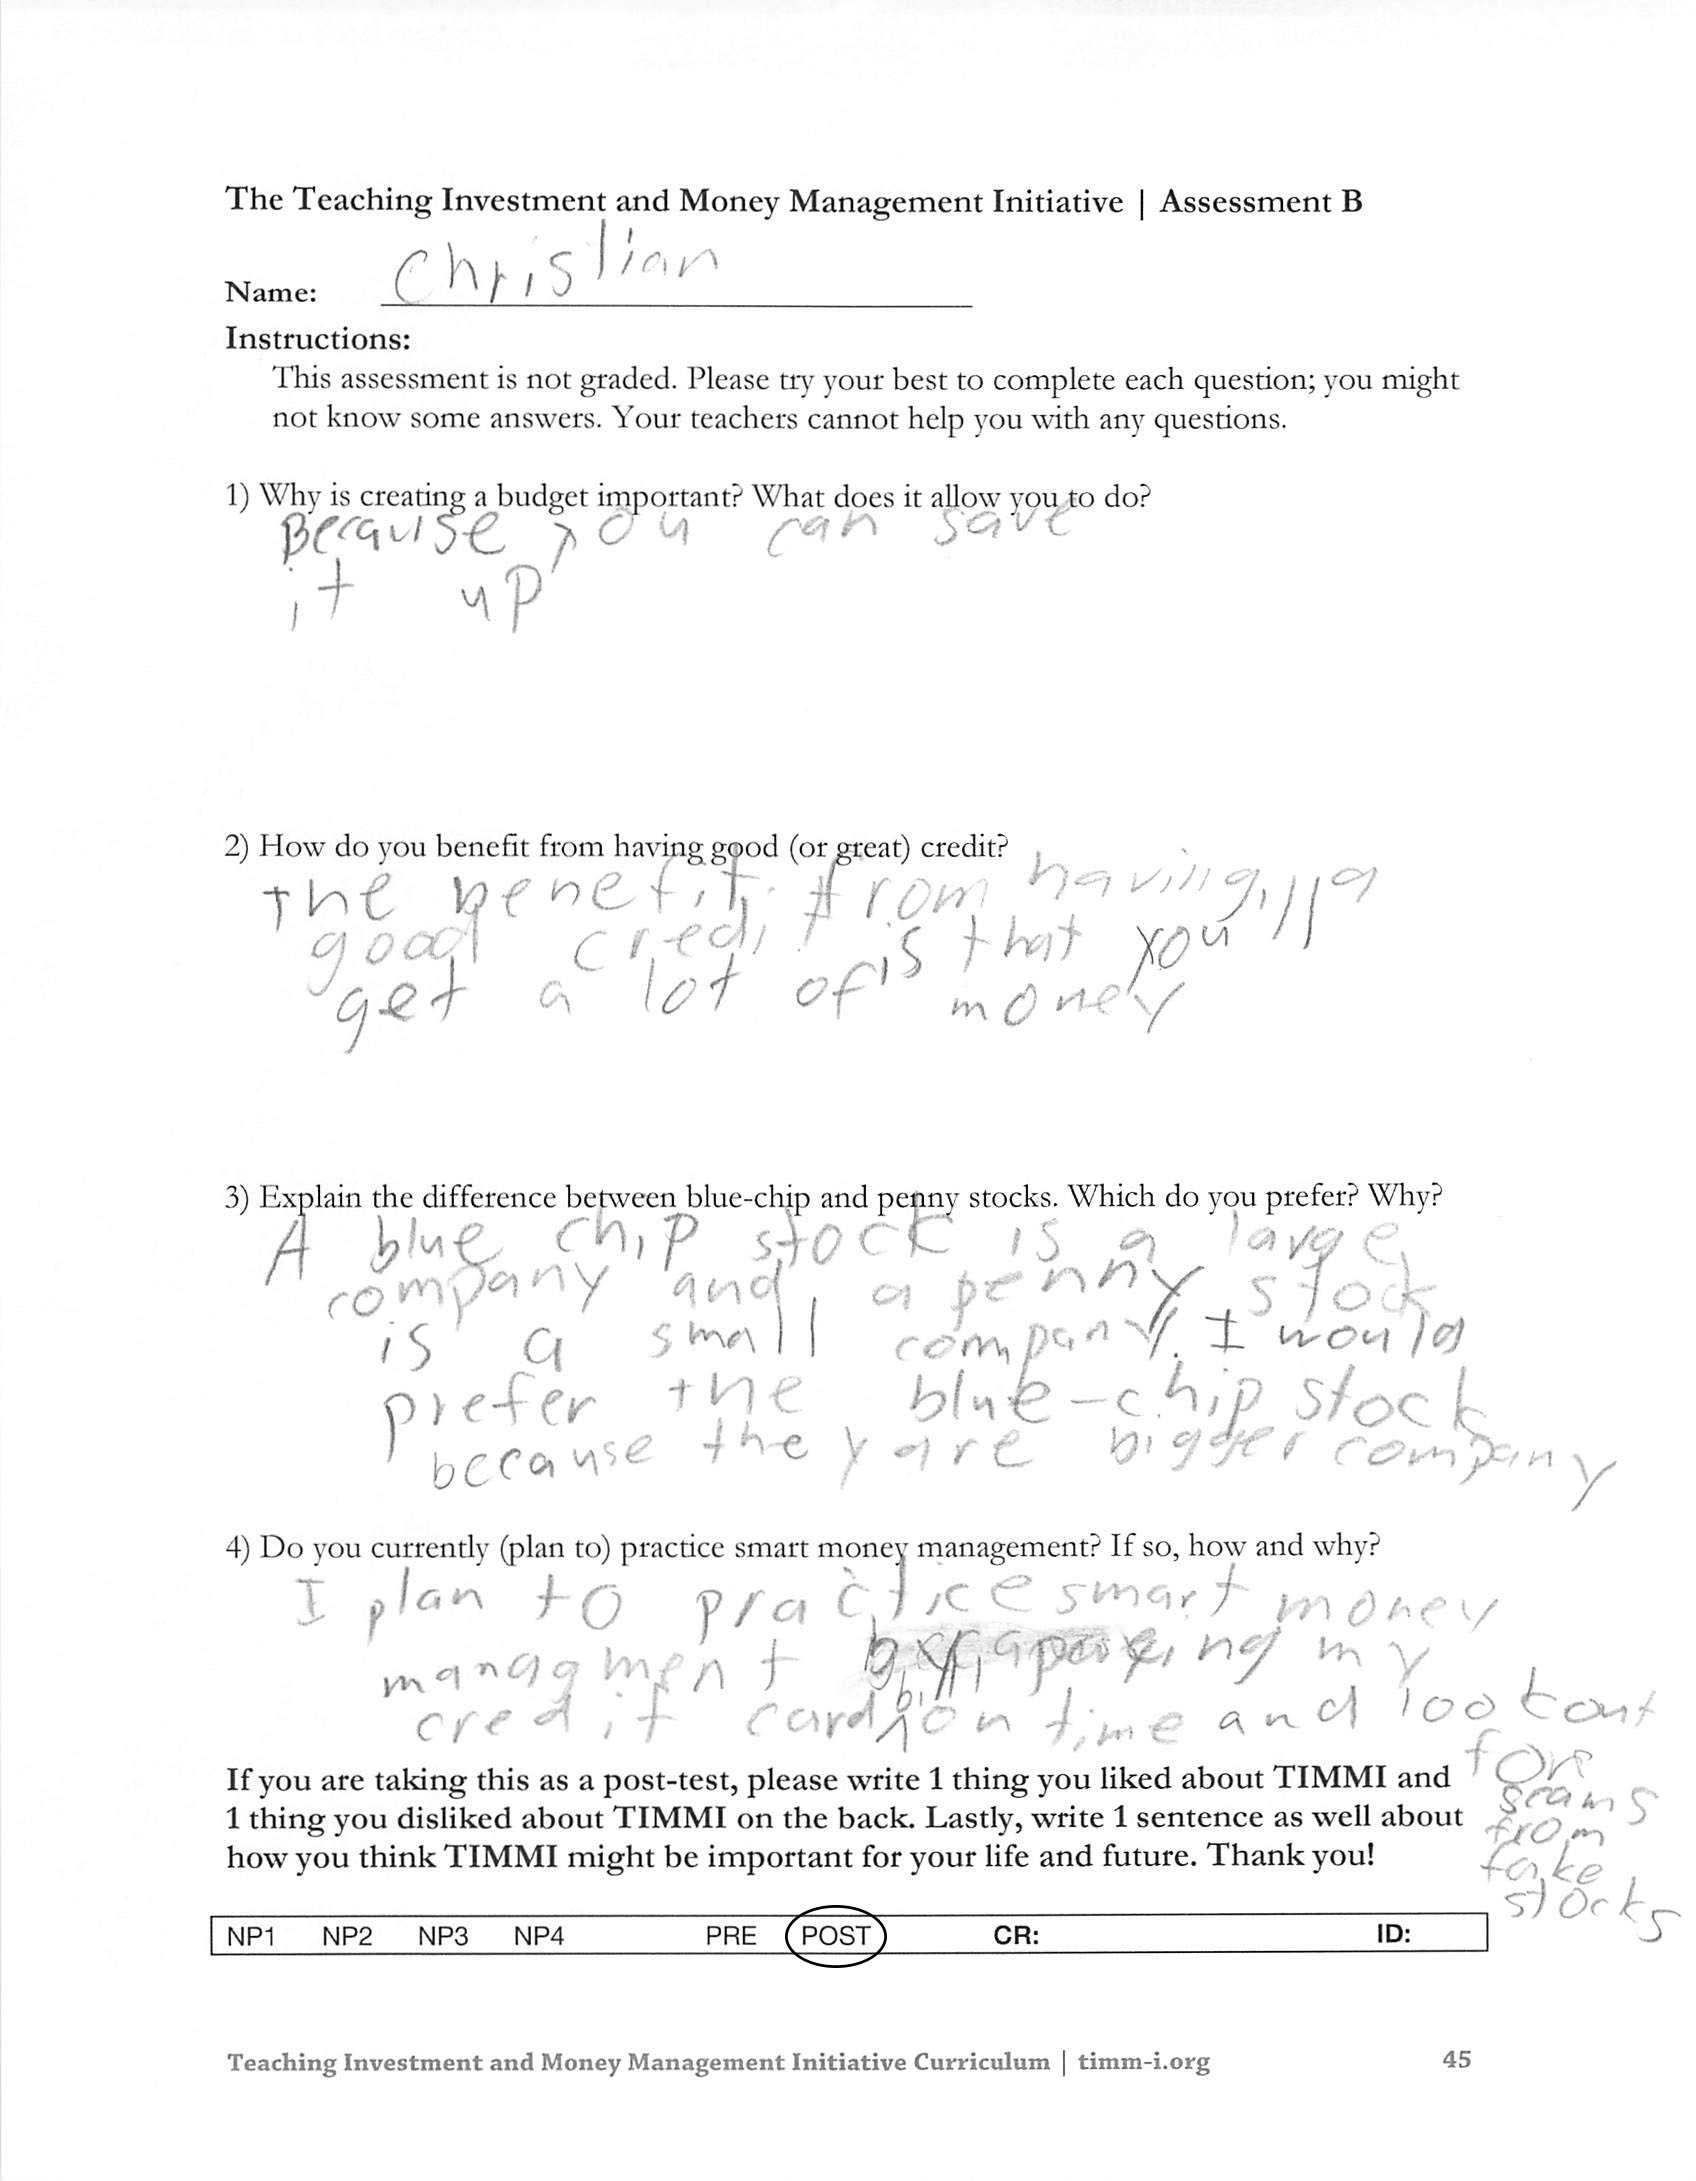 The Teaching Investment and Money Management Initiative | Assessment B
Name: Christian
Instructions:
This assessment is not graded. Please try your best to complete each question; you might
not know some answers. Your teachers cannot help you with any questions.
1) Why is creating a budget important? What does it allow you to do?
Because you can save
it up
2) How do you benefit from having good (or great) credit?
The benefit from having a
good credit is that you'll
get a lot of money
3) Explain the difference between blue-chip and penny stocks. Which do you prefer? Why?
A blue chip stock is a large
company and a penny stock
is a small company. I would
prefer the blue-chip stock
because they are bigger company
4) Do you currently (plan to) practice smart money management? If so, how and why?
I plan to practice smart money
managment by my
credit card bill on time and look out
for
scams
from
fake
stocks
If you are taking this as a post-test, please write 1 thing you liked about TIMMI and
1 thing you disliked about TIMMI on the back. Lastly, write 1 sentence as well about
how you think TIMMI might be important for your life and future. Thank you!
NP1 NP2 NP3 NP4 PRE POST CR: ID:
Teaching Investment and Money Management Initiative Curriculum | timm-i.org 45